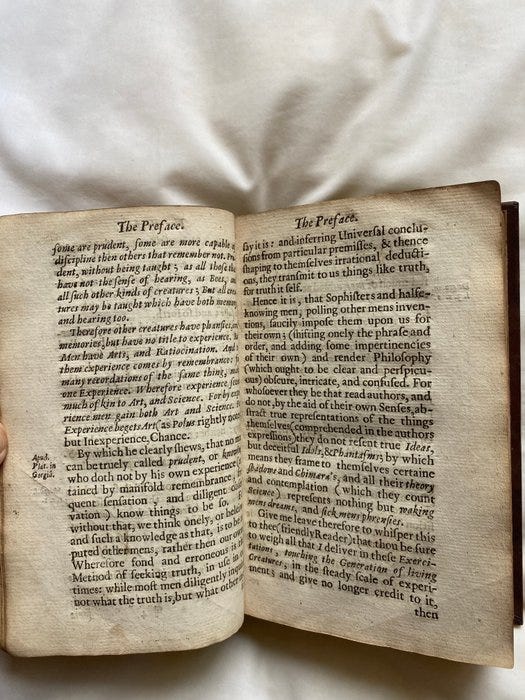 The Preface.
some are prudent, some are more capable of
discipline then others that remember not. Pru-
dent, without being taught; as all those that
have not the sense of hearing, as Bees, and
all such other kinds of creatures; But all crea-
tures may be taught which have both memory
and hearing too.
Therefore other creatures have phansies, and
memories, but have no title to experience. But
Men have Arts, and Ratiocination. And in
them experience comes by remembrance: for
many recordations of the same thing, make
one Experience. Wherefore experience seems
much of kin to Art, and Science. For by expe-
rience men gain both Art and Science. For
Experience begets Art, as Polus rightly notes,
but Inexperience, Chance.
Apud.
Plat. in
Gorgiâ.
By which he clearly shews, that no man
can be truely called prudent, or knowing,
who doth not by his own experience (ob-
tained by manifold remembrance, fre-
quent sensation, and diligent obser-
vation) know things to be so, For
without that, we think onely, or believe;
and such a knowledge as that, is to be re-
puted other mens, rather then our own.
Wherefore fond and erroneous is that
Method of seeking truth, in use in our
times: while most men diligently inquire,
not what the truth is, but what other men
The Preface.
say it is: and inferring Universal conclu-
sions from particular premisses, & thence
shaping to themselves irrational deducti-
ons, they transmit to us things like truth,
for truth it self.
Hence it is, that Sophisters and halfe-
knowing men, polling other mens inven-
tions, saucily impose them upon us for
their own; (shifting onely the phrase and
order, and adding some impertinencies
of their own) and render Philosophy
(which ought to be clear and perspicu-
ous) obscure, intricate, and confused. For
whosoever they be that read authors, and
do not, by the aid of their own Senses, ab-
stract true representations of the things
themselves (comprehended in the authors
expressions) they do not resent true Ideas,
but deceitful Idols, & Phantasms; by which
means they frame to themselves certaine
shadows and Chimæra's, and all their theory
and contemplation (which they count
Science) represents nothing but waking
mens dreams, and sick mens phrensies.
Give me leave therefore to whisper this
to thee (friendly Reader) that thou be sure
to weigh all that I deliver in these Exerci-
tations, touching the Generation of living
Creatures, in the steady scale of experi-
ment; and give no longer credit to it,
then